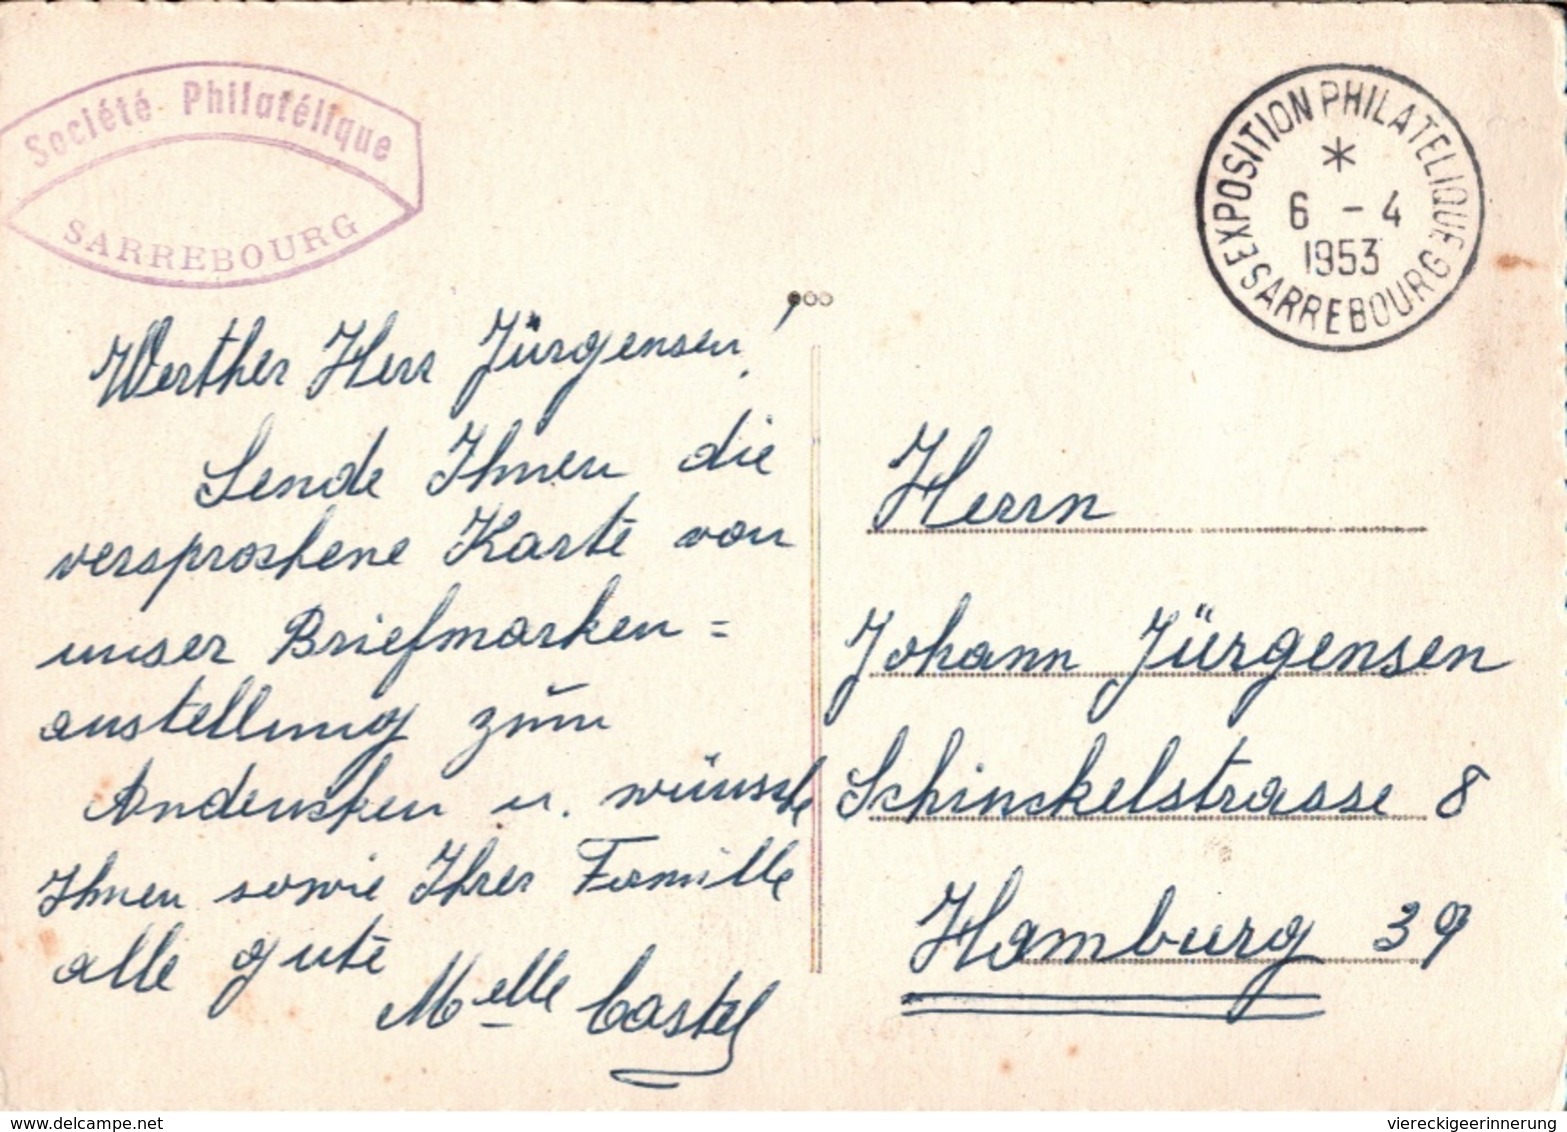 Société Philatélique
SARREBOURG
EXPOSITION PHILATELIQUE
*
6 - 4
1953
SARREBOURG
Werther Herr Jürgensen!
Sende Ihnen die
versprochene Karte von
unser Briefmarken=
austellung zum
Andencken u. wünsche
Ihnen sowie Ihrer Famille
alle gute
Melle Castel
Herrn
Johann Jürgensen
Schinckelstrasse 8
Hamburg 39
delcampe.net
viereckigeerinnerung